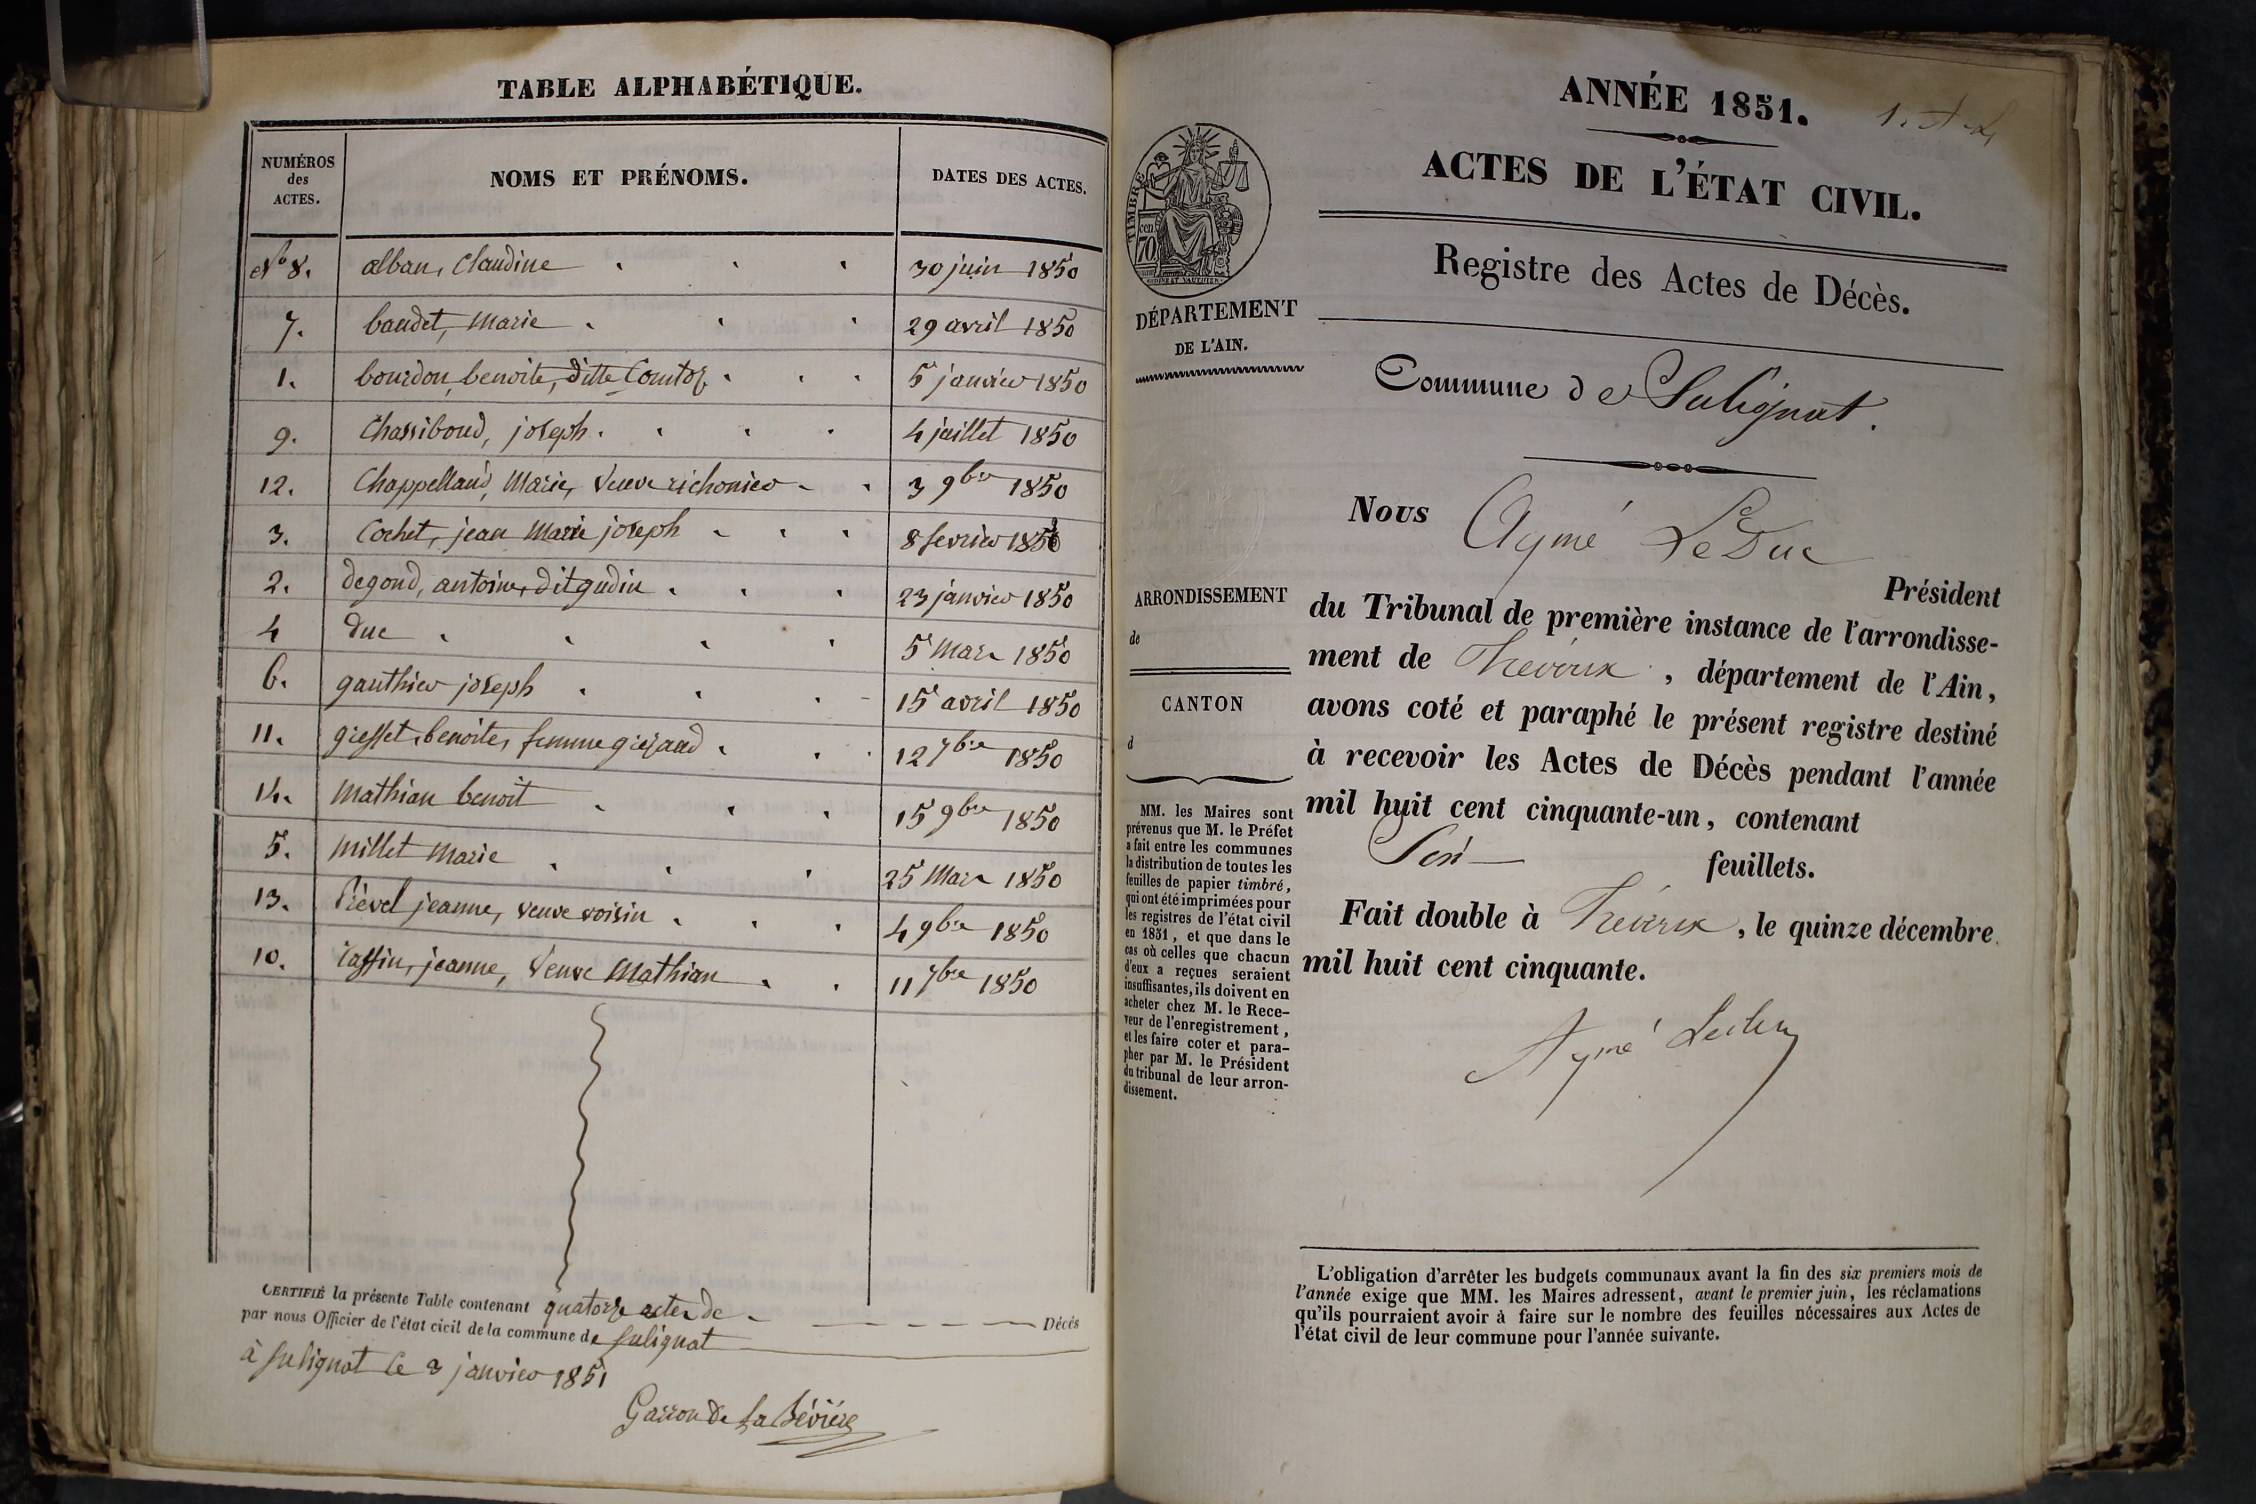 TABLE ALPHABÉTIQUE.
NUMÉROS des ACTES. NOMS ET PRÉNOMS. DATES DES ACTES.
No 8. alban, Claudine 30 juin 1850
7. baudet, Marie 29 avril 1850
1. bourdon, benoite, ditte Comtoz 5 janvier 1850
9. Chassiboud, joseph 4 juillet 1850
12. Chappelland, Marie, Veuve richonier 3 9bre 1850
3. Cochet, jean Marie joseph 8 fevrier 1850
2. degond, antoine, dit gudin 23 janvier 1850
4 duc 5 Mars 1850
6. gauthier joseph 15 avril 1850
11. gresset, benoite, femme 12 7bre 1850
14. Mathian benoit 15 9bre 1850
5. Millet Marie 25 Mars 1850
13. Révél jeanne, veuve voisin 4 9bre 1850
10. taffin, jeanne, Veuve Mathian 11 7bre 1850
CERTIFIÉ la présente Table contenant quatorze actes de Décès
par nous Officier de l'état cicil de la commune de Sulignat
à Sulignat le 3 janvier 1851
Garron de la Bévière
ANNÉE 1851.
ACTES DE L'ÉTAT CIVIL.
Registre des Actes de Décès.
TIMBRE
cen
70
DÉPARTEMENT
DE L'AIN.
Commune de Sulignat.
Nous Aymé LeDuc
Président
du Tribunal de première instance de l'arrondisse-
ment de Trévoux, département de l'Ain,
avons coté et paraphé le présent registre destiné
à recevoir les Actes de Décès pendant l'année
mil huit cent cinquante-un, contenant
Six feuillets.
Fait double à Trévoux, le quinze décembre
mil huit cent cinquante.
Aymé Leduc
ARRONDISSEMENT
de
CANTON
d
MM. les Maires sont
prévenus que M. le Préfet
a fait entre les communes
la distribution de toutes les
feuilles de papier timbré,
qui ont été imprimées pour
les registres de l'état civil
en 1851, et que dans le
cas où celles que chacun
d'eux a reçues seraient
insuffisantes, ils doivent en
acheter chez M. le Rece-
veur de l'enregistrement,
et les faire coter et para-
pher par M. le Président
du tribunal de leur arron-
dissement.
L'obligation d'arrêter les budgets communaux avant la fin des six premiers mois de
l'année exige que MM. les Maires adressent, avant le premier juin, les réclamations
qu'ils pourraient avoir à faire sur le nombre des feuilles nécessaires aux Actes de
l'état civil de leur commune pour l'année suivante.